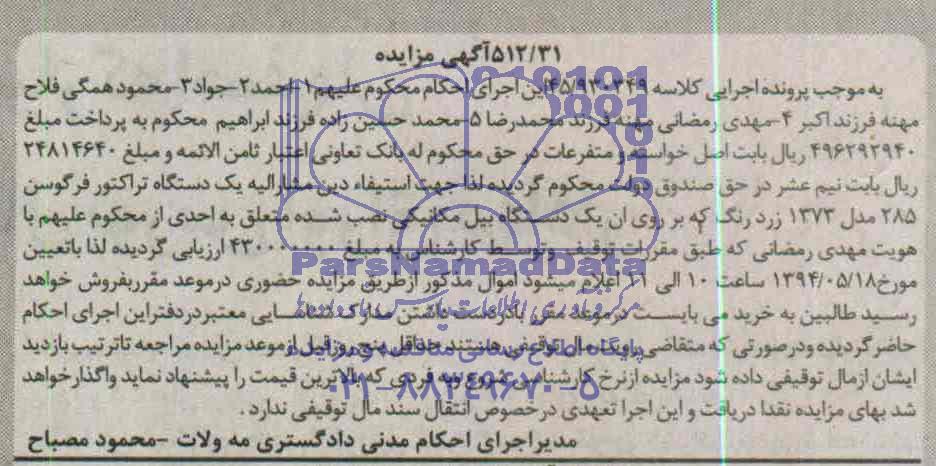 ۵۱۲/۳۱آگهی مزایده
به موجب پرونده اجرایی کلاسه ۴۵/۹۳۰۳۴۹این اجرای احکام محکوم علیهم۱-احمد۲-جواد۳-محمود همگی فلاح
مهنه فرزند اکبر ۴-مهدی رمضانی مهنه فرزند محمدرضا ۵-محمد حسین زاده فرزند ابراهیم محکوم به پرداخت مبلغ
۴۹۶۲۹۲۹۴۰ ریال بابت اصل خواسته و متفرعات در حق محکوم له بانک تعاونی اعتبار ثامن الائمه و مبلغ ۲۴۸۱۴۶۴۰
ریال بابت نیم عشر در حق صندوق دولت محکوم گردیده لذا جهت استیفاء دین مشارالیه یک دستگاه تراکتور فرگوسن
۲۸۵ مدل ۱۳۷۳ زرد رنگ که بر روی ان یک دستگاه بیل مکانیکی نصب شده متعلق به احدی از محکوم علیهم با
هویت مهدی رمضانی که طبق مقررات توقیف وتوسط کارشناس به مبلغ ۴۳۰۰۰۰۰۰۰ ارزیابی گردیده لذا باتعیین
مورخ۱۳۹۴/۰۵/۱۸ ساعت ۱۰ الی ۱۱ اعلام میشود اموال مذکور ازطریق مزایده حضوری درموعد مقرربفروش خواهد
رسید طالبین به خرید می بایست درموعد مقرر بادردست داشتن مدارک شناسایی معتبردردفتراین اجرای احکام
حاضرگردیده ودرصورتی که متقاضی رویت مال توقیفی هستند حداقل پنج روزقبل ازموعد مزایده مراجعه تاترتیب بازدید
ایشان ازمال توقیفی داده شود مزایده ازنرخ کارشناسی شروع وبه فردی که بالاترین قیمت را پیشنهاد نماید واگذارخواهد
شد بهای مزایده نقدا دریافت و این اجرا تعهدی درخصوص انتقال سند مال توقیفی ندارد .
مدیراجرای احکام مدنی دادگستری مه ولات -محمود مصباح
ParsNamadData
مرکز فناوری اطلاعات پارس نماد داده ها
پایگاه اطلاع رسانی مناقصه و مزایده
۰۲۱-۸۸۳۴۹۶۷۰-۵